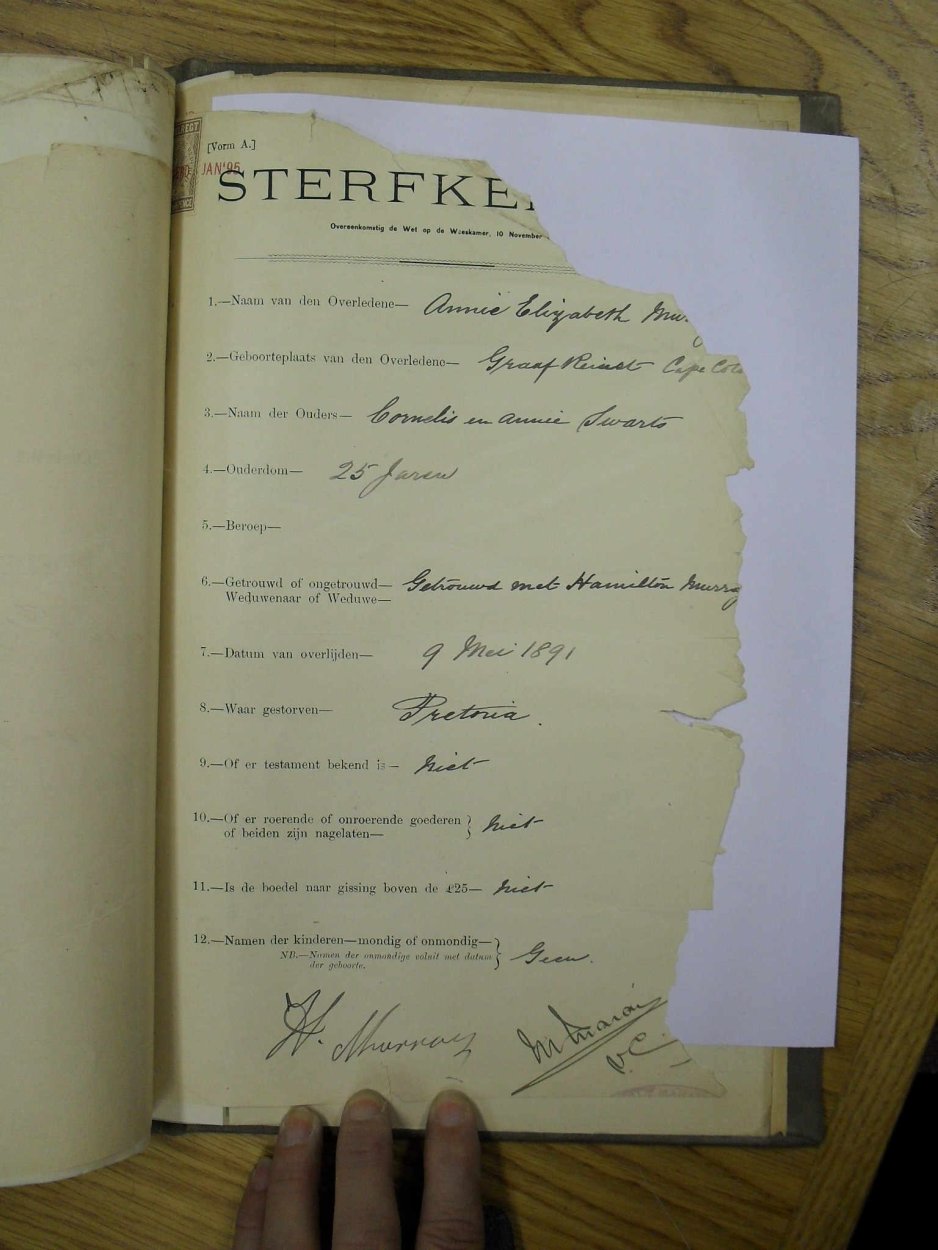 [Vorm A.]
JAN'95
STERFKE
Overeenkomstig de Wet op de Weeskamer, 10 November
1.—Naam van den Overledene— Annie Elizabeth Mu
2.—Geboorteplaats van den Overledene— Graaf Reinet Cape Colo
3.—Naam der Ouders— Cornelis en Annie Swarts
4.—Ouderdom— 25 Jaren
5.—Beroep—
6.—Getrouwd of ongetrouwd— Getrouwd met Hamilton Murray
Weduwenaar of Weduwe—
7.—Datum van overlijden— 9 Mei 1891
8.—Waar gestorven— Pretoria.
9.—Of er testament bekend is— Niet
10.—Of er roerende of onroerende goederen } Niet
of beiden zijn nagelaten—
11.—Is de boedel naar gissing boven de £25— Niet
12.—Namen der kinderen—mondig of onmondig— } Geen.
NB.—Namen der onmondige voluit met datum
der geboorte.
H. Murray